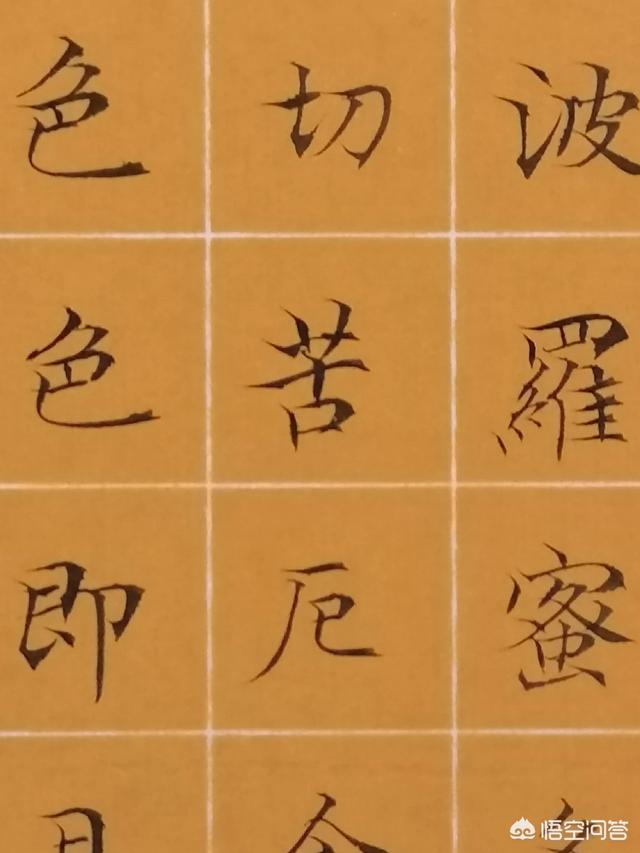 波羅蜜
切苦厄
色色即
悟空问答